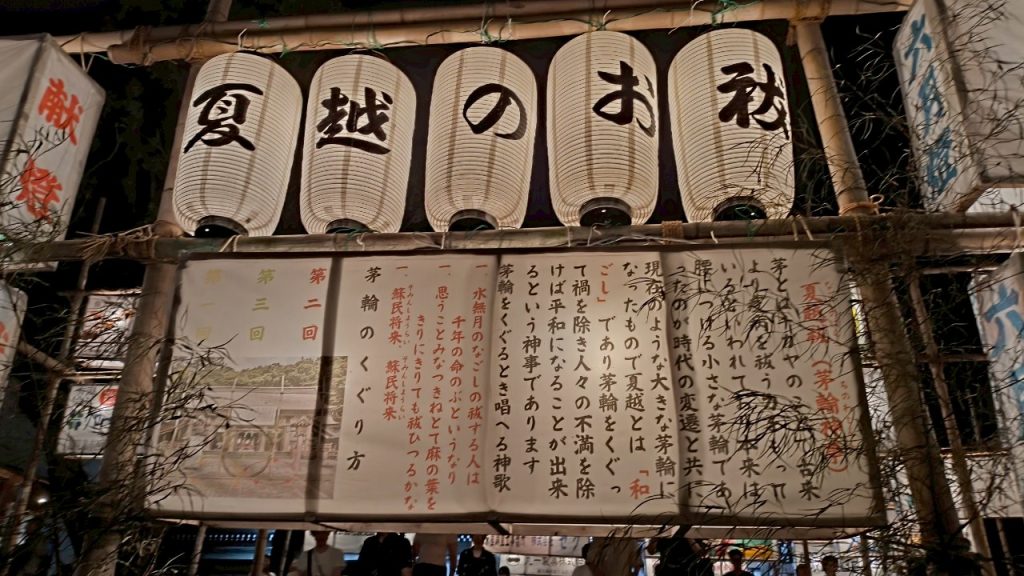 夏越のお祓
献燈
六月燈
夏越祓
茅とはチガヤの 古来
より災厄を祓う 
いるといわれて 本来は
腰につける小さな茅輪であ
ったのが時代の変遷と共に
現在のような大きな茅輪に
なったもので夏越とは「和
ごし」であり茅輪をくぐっ
て禍を除き人々の不満を除
けば平和になることが出来
るという神事であります
茅輪をくぐるとき唱へる神歌
一、水無月のなごしの祓する人は
千年の命のぶというなり
一、思うことみなつきねとて麻の葉を
きりにきりても祓ひつるかな
一、蘇民将来、蘇民将来
茅輪のくぐり方
第二回
第三回
第一回